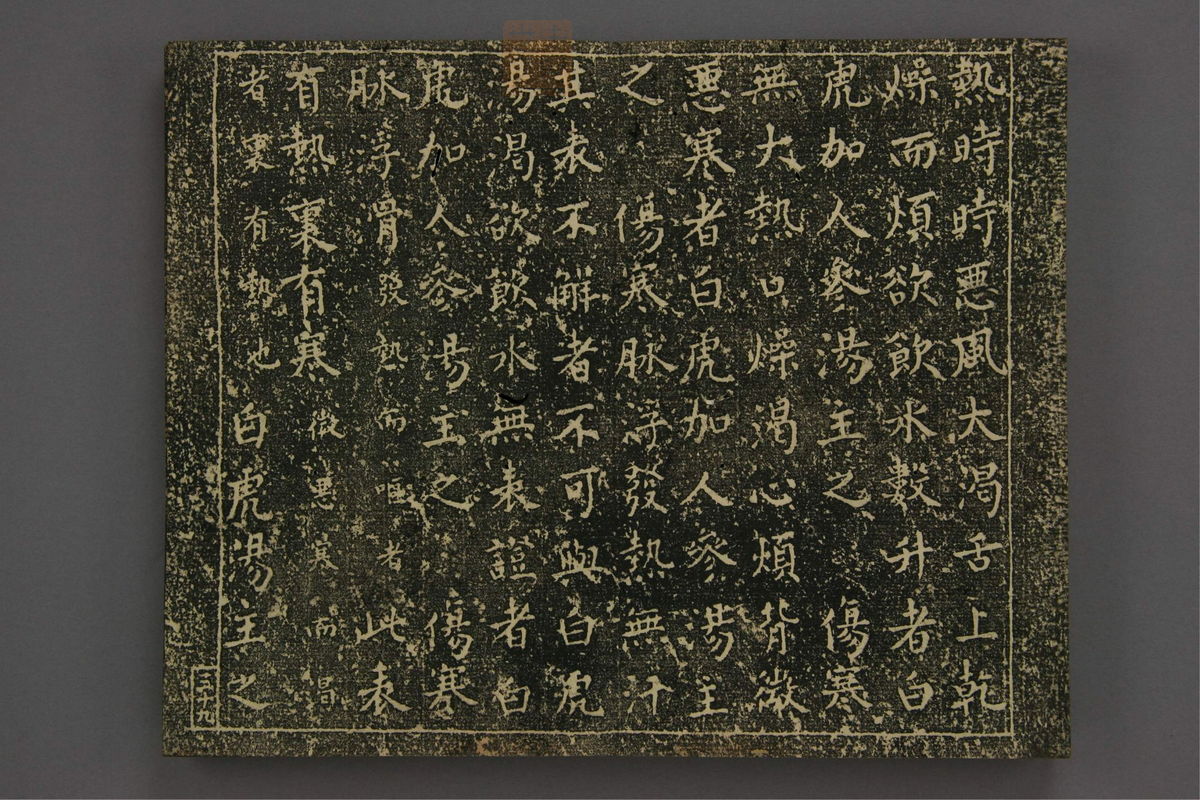 熱時時悪風大渇舌上乾
燥而煩欲飲水數升者白
虎加人參湯主之　傷寒
無大熱口燥渇心煩背微
悪寒者白虎加人參湯主
之　傷寒脉浮發熱無汗
其表不解者不可與白虎
湯渇欲飲水無表證者白
虎加人參湯主之　傷寒
脉浮滑發熱而嘔者此表
有熱裏有寒微悪而
者裏有熱也白虎湯主之
三十九